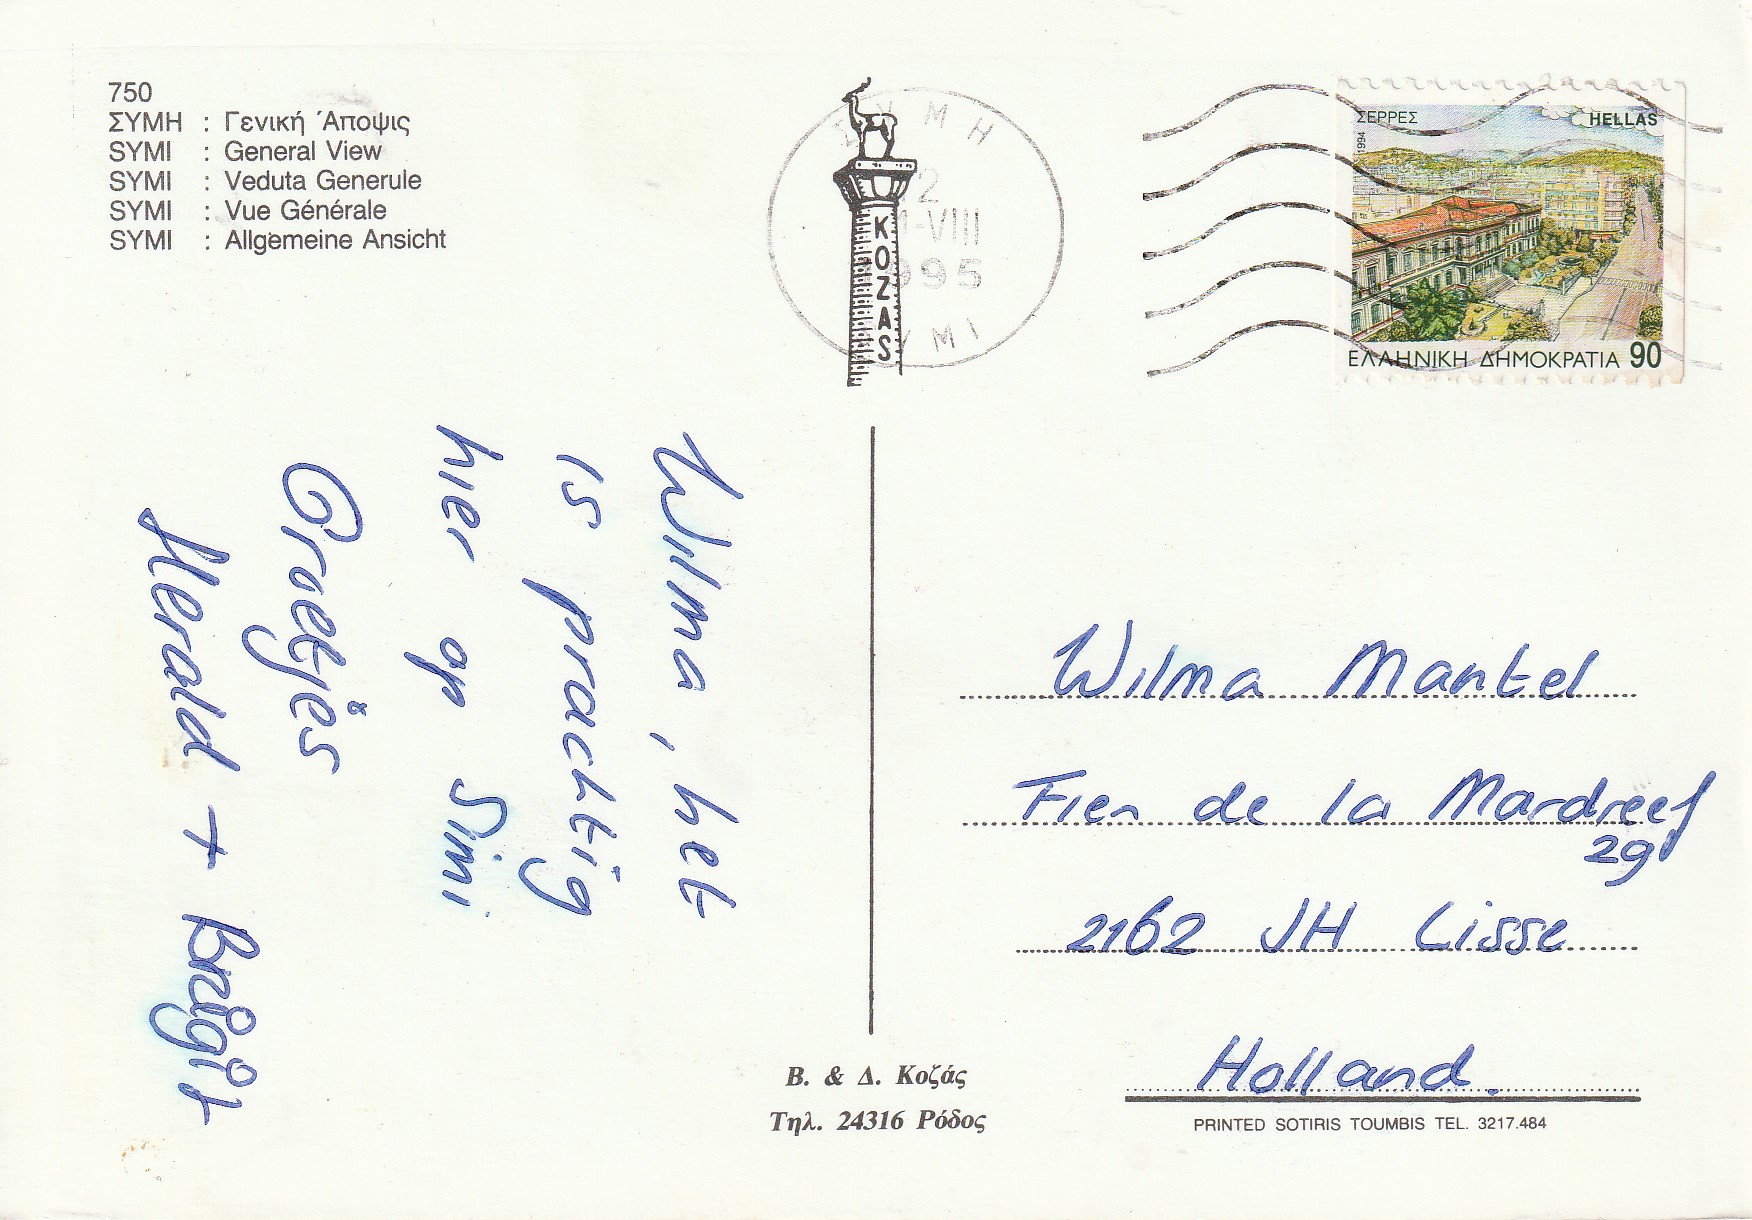 750
ΣΥΜΗ : Γενική Άποψις
SYMI : General View
SYMI : Veduta Generule
SYMI : Vue Générale
SYMI : Allgemeine Ansicht
ΣΥΜΗ
2
-VIII
995
ΥΜΙ
KOZAS
ΣΕΡΡΕΣ
HELLAS
1994
ΕΛΛΗΝΙΚΗ ΔΗΜΟΚΡΑΤΙΑ 90
Wilma, het
is prachtig
hier op Simi
Groetjes
Herald + Brigit
Wilma Mantel
Fien de la Mardreef
29
2162 JH Lisse
Holland.
Β. & Δ. Κοζάς
Τηλ. 24316 Ρόδος
PRINTED SOTIRIS TOUMBIS TEL. 3217.484